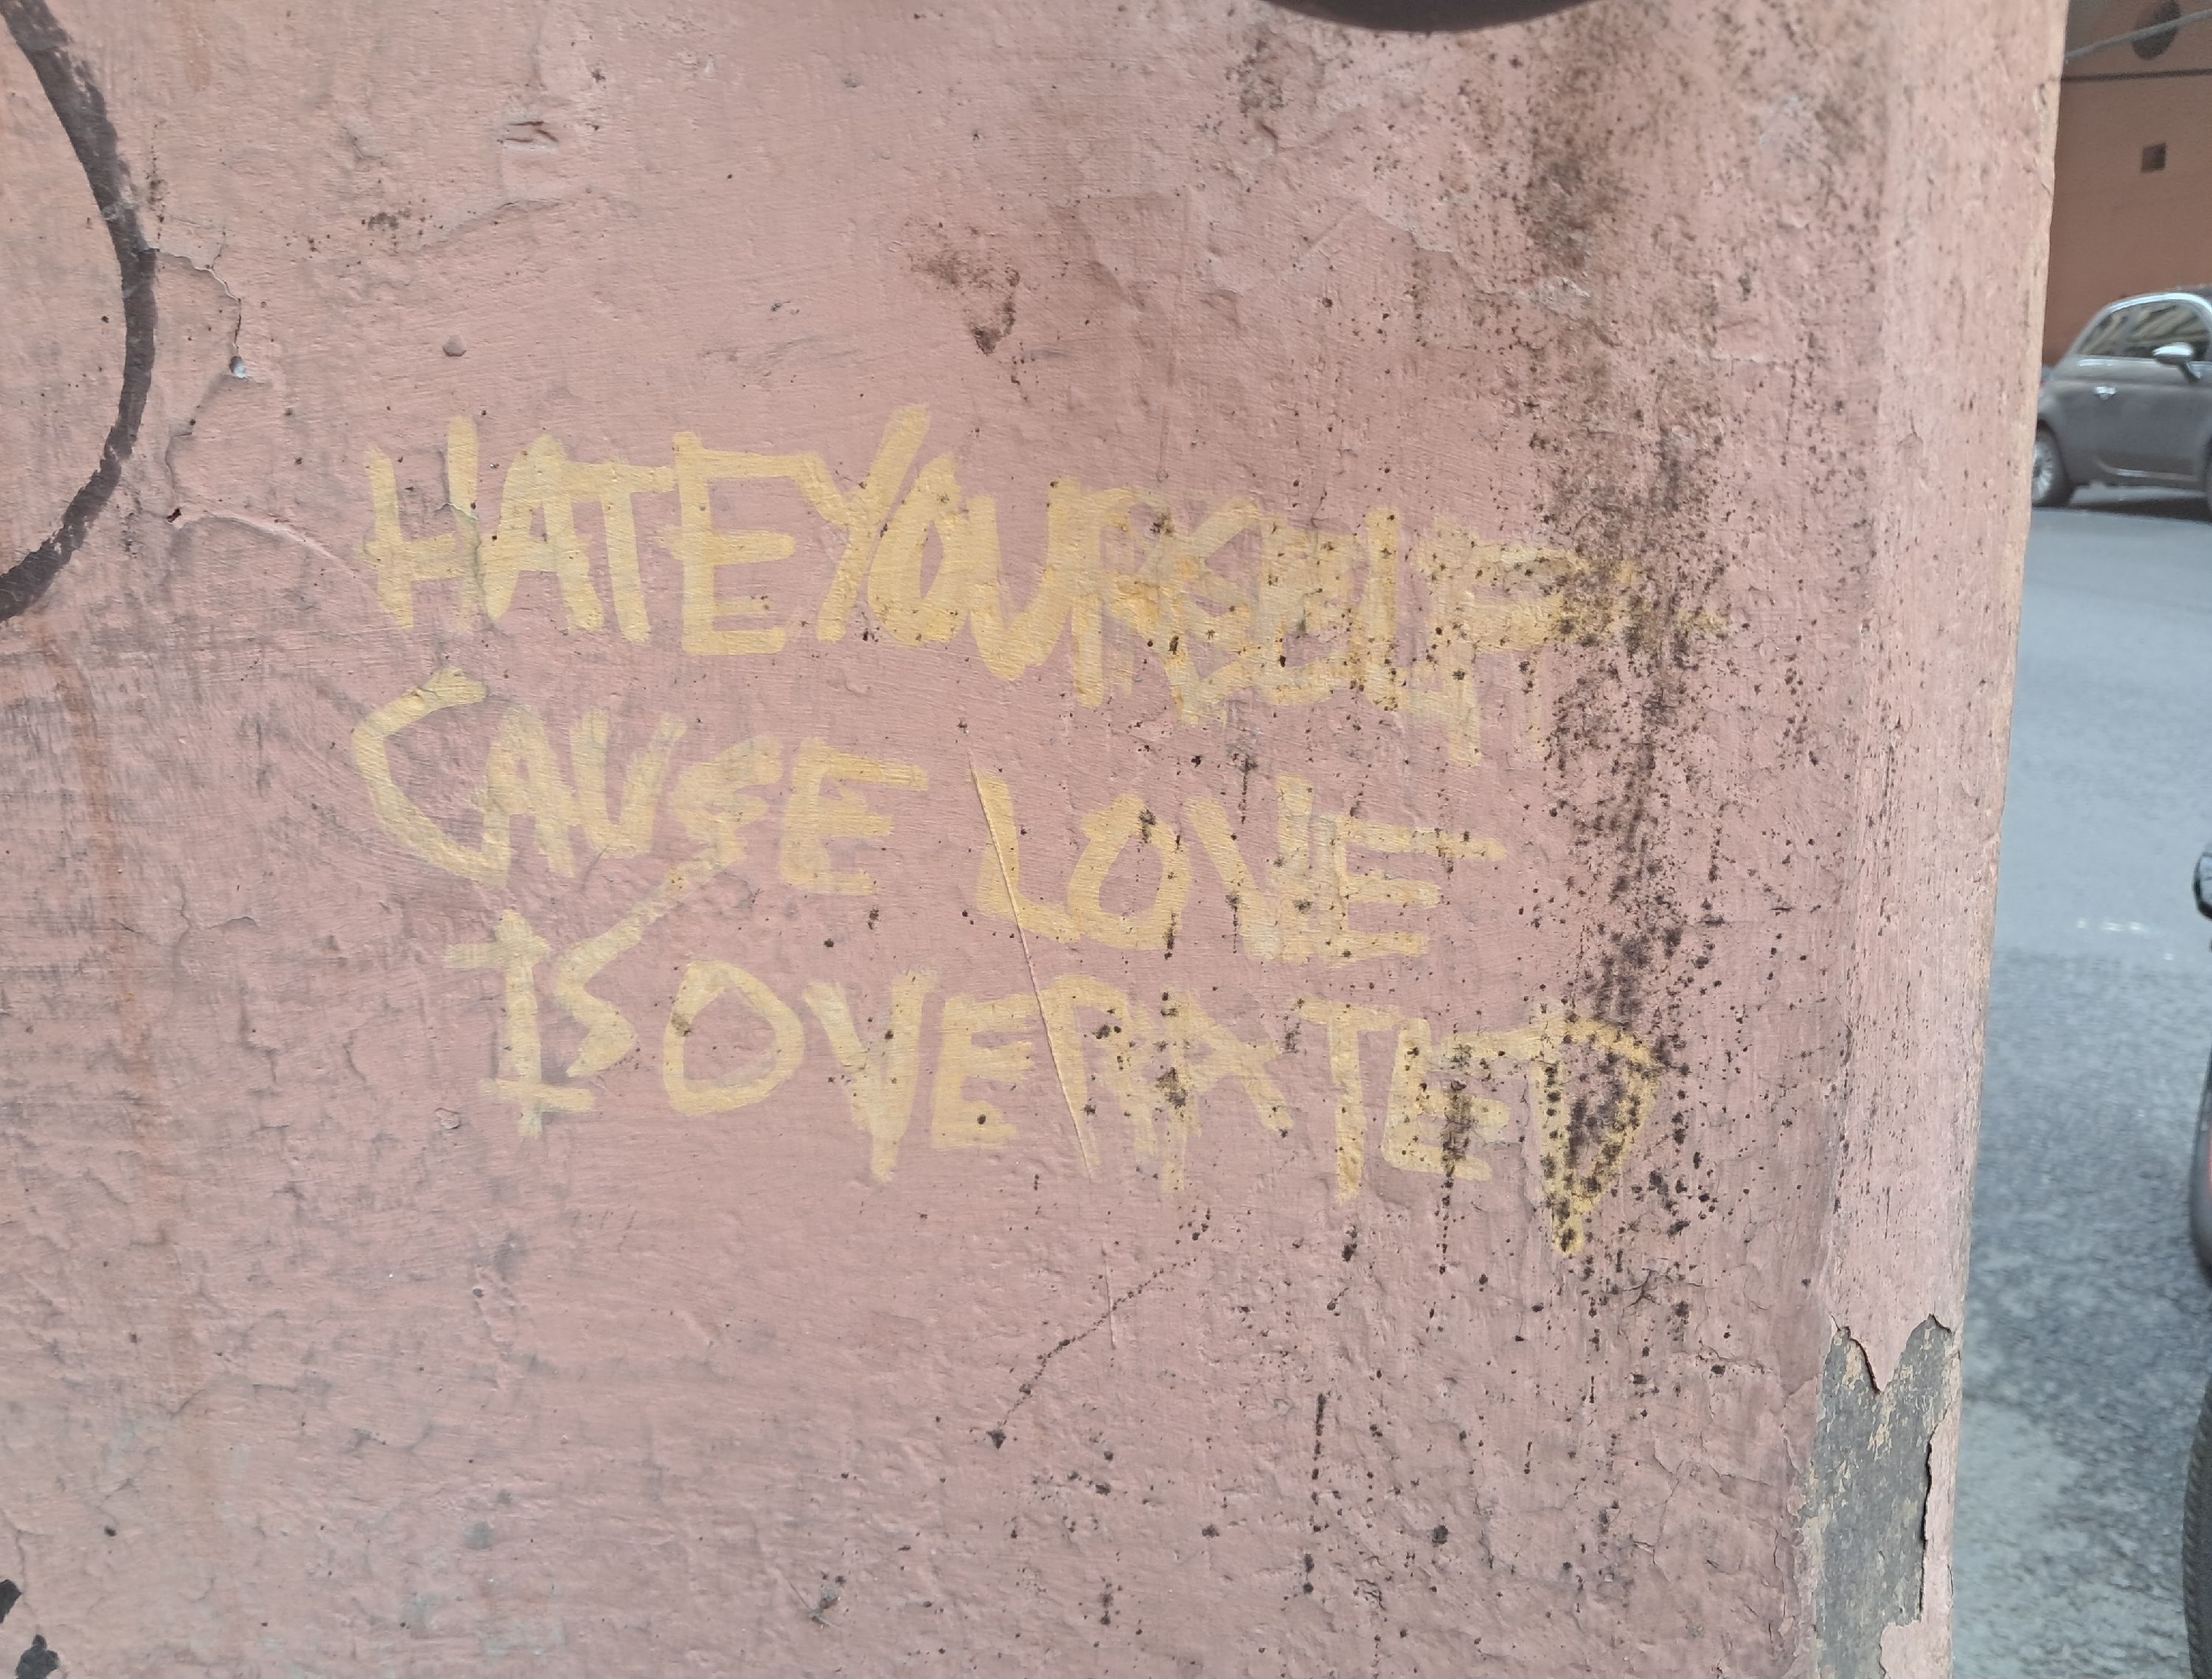 HATE YOURSELF
CAUSE LOVE
IS OVERATED